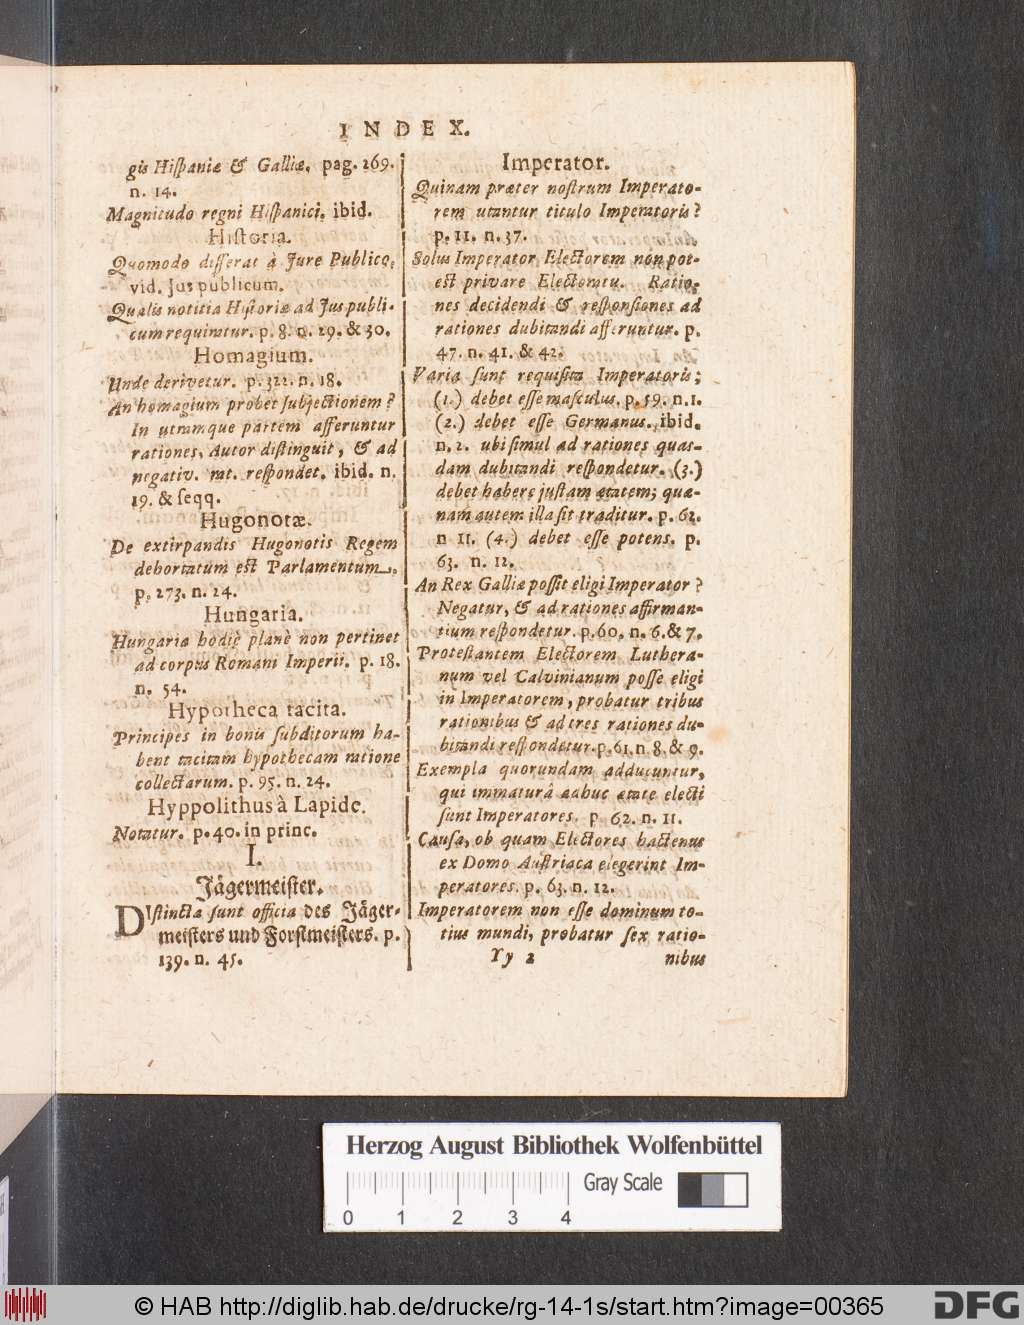 INDEX.
gis Hiſpaniæ & Galliæ. pag. 269.
n. 14.
Magnitudo regni Hiſpanici. ibid.
Hiſtoria.
Quomodo differat à Jure Publico,
vid. Jus publicum.
Qualis notitia Hiſtoriæ ad Jus publi-
cum requiratur. p. 8. n. 29. & 30.
Homagium.
Unde derivetur. p. 322. n. 18.
An homagium probet ſubjectionem?
In utramque partem afferuntur
rationes, Autor diſtinguit, & ad
negativ. rat. reſpondet. ibid. n.
19. & ſeqq.
Hugonotæ.
De extirpandis Hugonotis Regem
dehortatum eſt Parlamentum.
p. 273. n. 24.
Hungaria.
Hungaria hodiè planè non pertinet
ad corpus Romani Imperii. p. 18.
n. 54.
Hypotheca tacita.
Principes in bonis ſubditorum ha-
bent tacitam hypothecam ratione
collectarum. p. 95. n. 24.
Hyppolithus à Lapide.
Notatur. p. 40. in princ.
I.
Jägermeiſter.
DIſtincta ſunt officia des Jäger-
meiſters und Forſtmeiſters. p.
139. n. 45.
Imperator.
Quinam præter noſtrum Imperato-
rem utantur titulo Imperatoris?
p. 11. n. 37.
Solus Imperator Electorem non pot-
eſt privare Electoratu. Ratio-
nes decidendi & reſponſiones ad
rationes dubitandi afferuntur. p.
47. n. 41. & 42.
Varia ſunt requiſita Imperatoris;
(1.) debet eſſe maſculus. p. 59. n. 1.
(2.) debet eſſe Germanus. ibid.
n. 2. ubi ſimul ad rationes quas-
dam dubitandi reſpondetur. (3.)
debet habere juſtam ætatem; quæ-
nam autem illa ſit traditur. p. 62.
n 11. (4.) debet eſſe potens. p.
63. n. 12.
An Rex Galliæ poſſit eligi Imperator?
Negatur, & ad rationes affirman-
tium reſpondetur. p. 60. n. 6. & 7.
Proteſtantem Electorem Luthera-
num vel Calvinianum poſſe eligi
in Imperatorem, probatur tribus
rationibus & ad tres rationes du-
bitandi reſpondetur. p. 61. n. 8. & 9.
Exempla quorundam adducuntur,
qui immaturâ adhuc ætate electi
ſunt Imperatores. p. 62. n. 11.
Cauſa, ob quam Electores hactenus
ex Domo Auſtriaca elegerint Im-
peratores. p. 63. n. 12.
Imperatorem non eſſe dominum to-
tius mundi, probatur ſex ratio-
Yy 2 nibus
Herzog August Bibliothek Wolfenbüttel
Gray Scale
0 1 2 3 4
© HAB http://diglib.hab.de/drucke/rg-14-1s/start.htm?image=00365
DFG